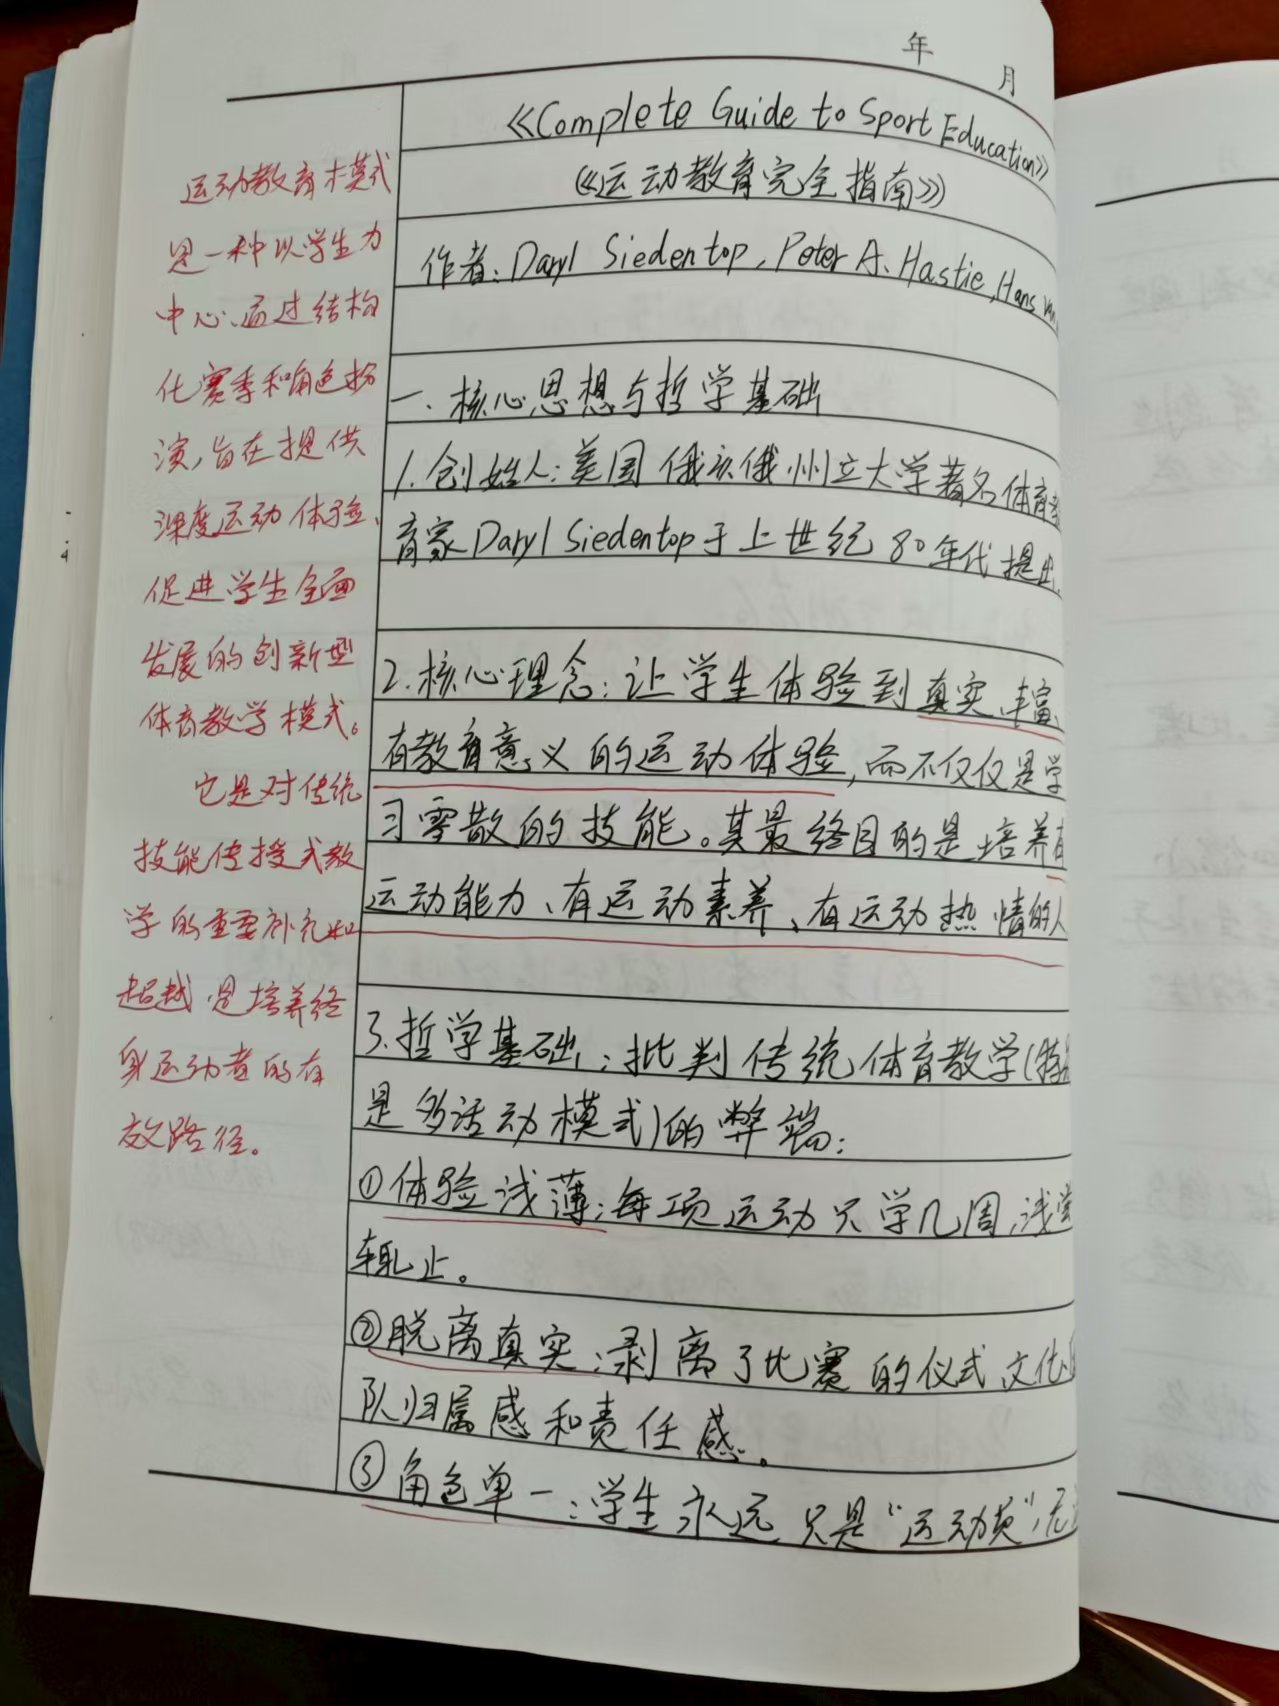 年 月
《Complete Guide to Sport Education》
《运动教育完全指南》
作者：Daryl Siedentop, Peter A. Hastie, Hans
一、核心思想与哲学基础
1. 创始人：美国俄亥俄州立大学著名体育教
育家Daryl Siedentop于上世纪80年代提出
2. 核心理念：让学生体验到真实、丰富、
有教育意义的运动体验，而不仅仅是学
习零散的技能。其最终目的是培养有
运动能力、有运动素养、有运动热情的人
3. 哲学基础：批判传统体育教学(特别
是多活动模式)的弊端：
①体验浅薄：每项运动只学几周，浅尝
辄止。
②脱离真实：剥离了比赛的仪式、文化、
队归属感和责任感。
③角色单一：学生永远只是“运动员”，无
运动教育模式
是一种以学生为
中心、通过结构
化赛季和角色扮
演，旨在提供
深度运动体验、
促进学生全面
发展的创新型
体育教学模式。
它是对传统
技能传授式教
学的重要补充和
超越，是培养终
身运动者的有
效路径。